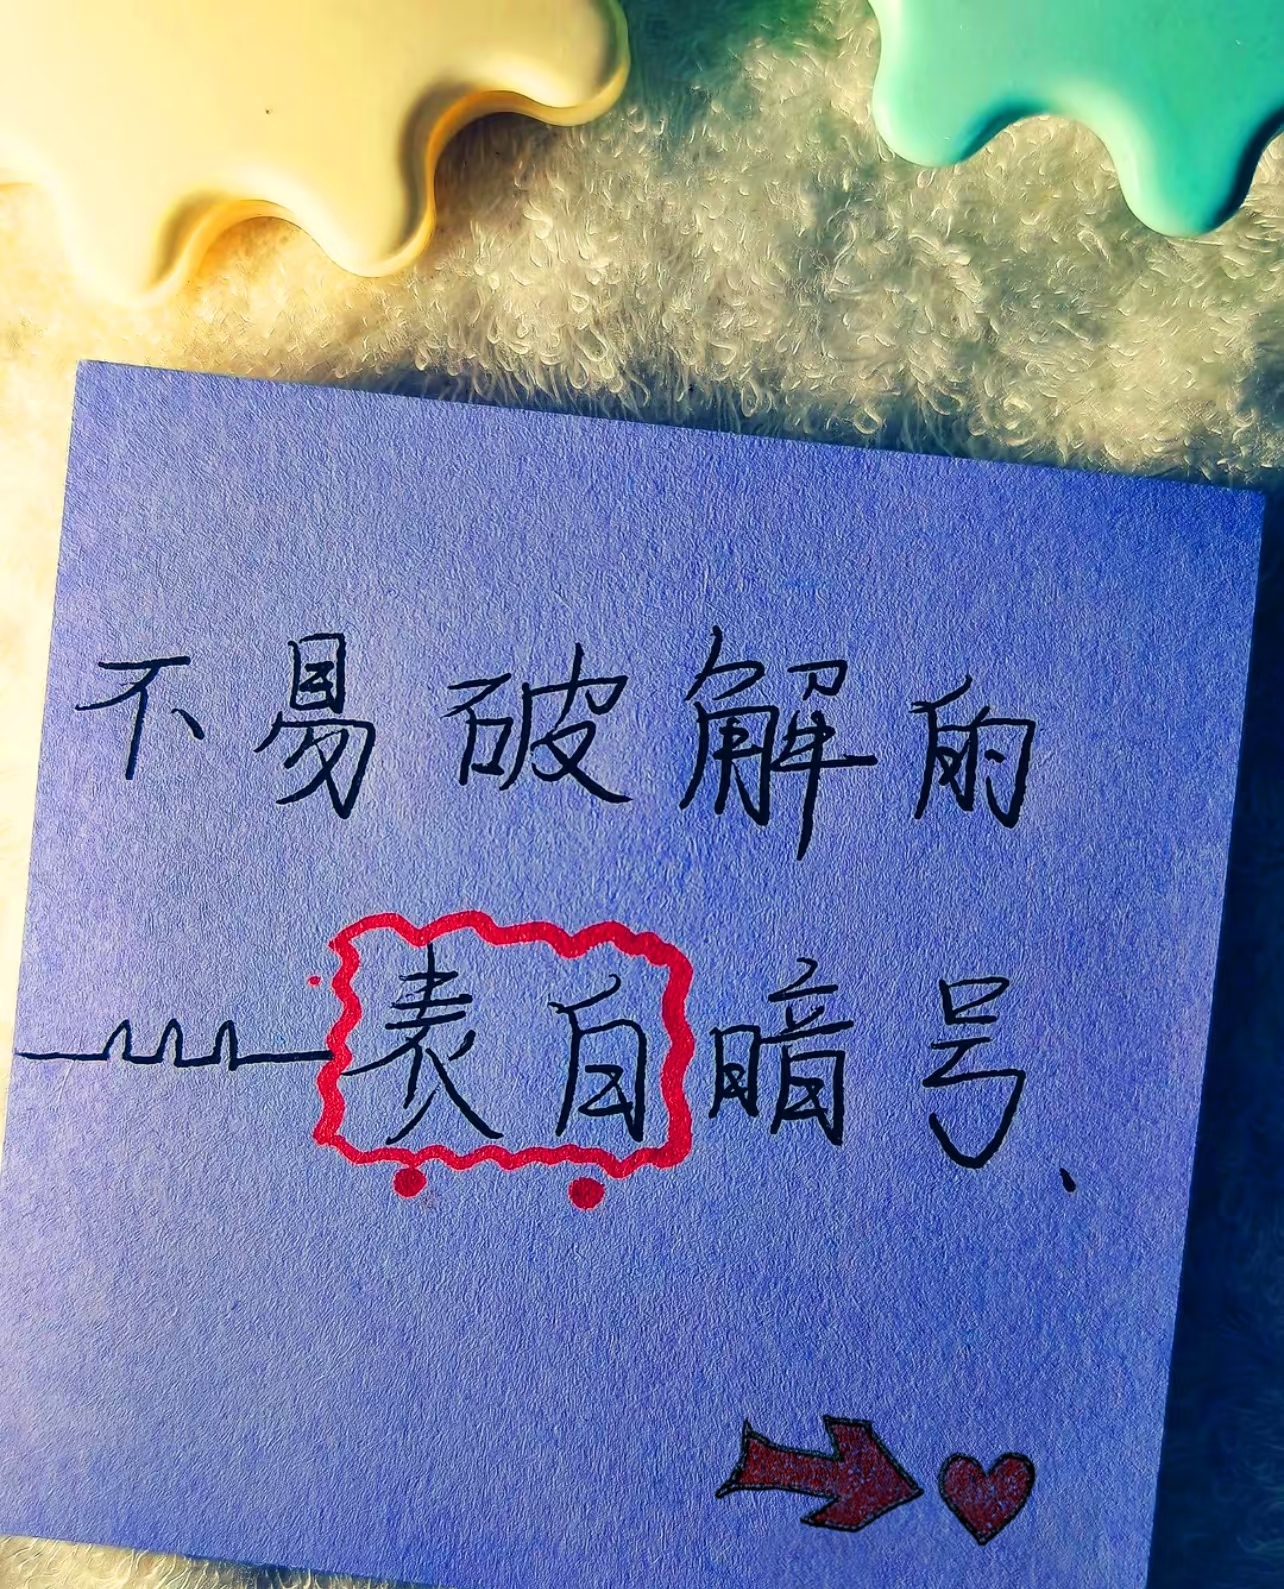 不易破解的
表白暗号、